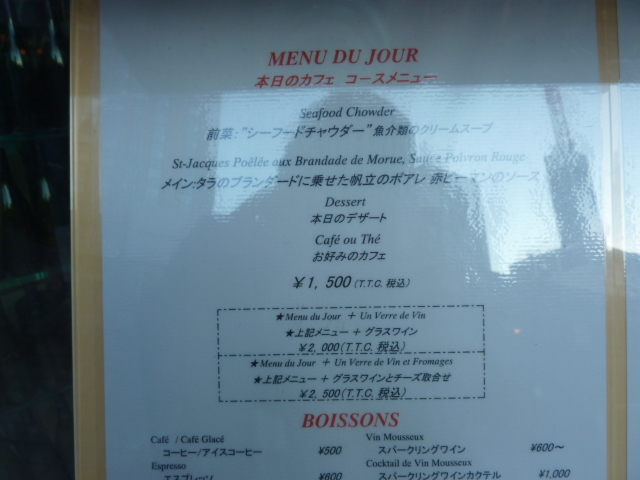 MENU DU JOUR
本日のカフェ コースメニュー
Seafood Chowder
前菜:"シーフードチャウダー"魚介類のクリームスープ
St-Jacques Poêlée aux Brandade de Morue, Sauce Poivron Rouge
メイン:タラのブランダードに乗せた帆立のポアレ 赤ピーマンのソース
Dessert
本日のデザート
Café ou Thé
お好みのカフェ
¥1,500 (T.T.C. 税込)
★Menu du Jour + Un Verre de Vin
★上記メニュー + グラスワイン
¥2,000 (T.T.C. 税込)
★Menu du Jour + Un Verre de Vin et Fromages
★上記メニュー + グラスワインとチーズ取合せ
¥2,500 (T.T.C. 税込)
BOISSONS
Café / Café Glacé
コーヒー/アイスコーヒー ¥500
Espresso
エスプレッソ ¥600
Vin Mousseux
スパークリングワイン ¥600～
Cocktail de Vin Mousseux
スパークリングワインカクテル ¥1,000